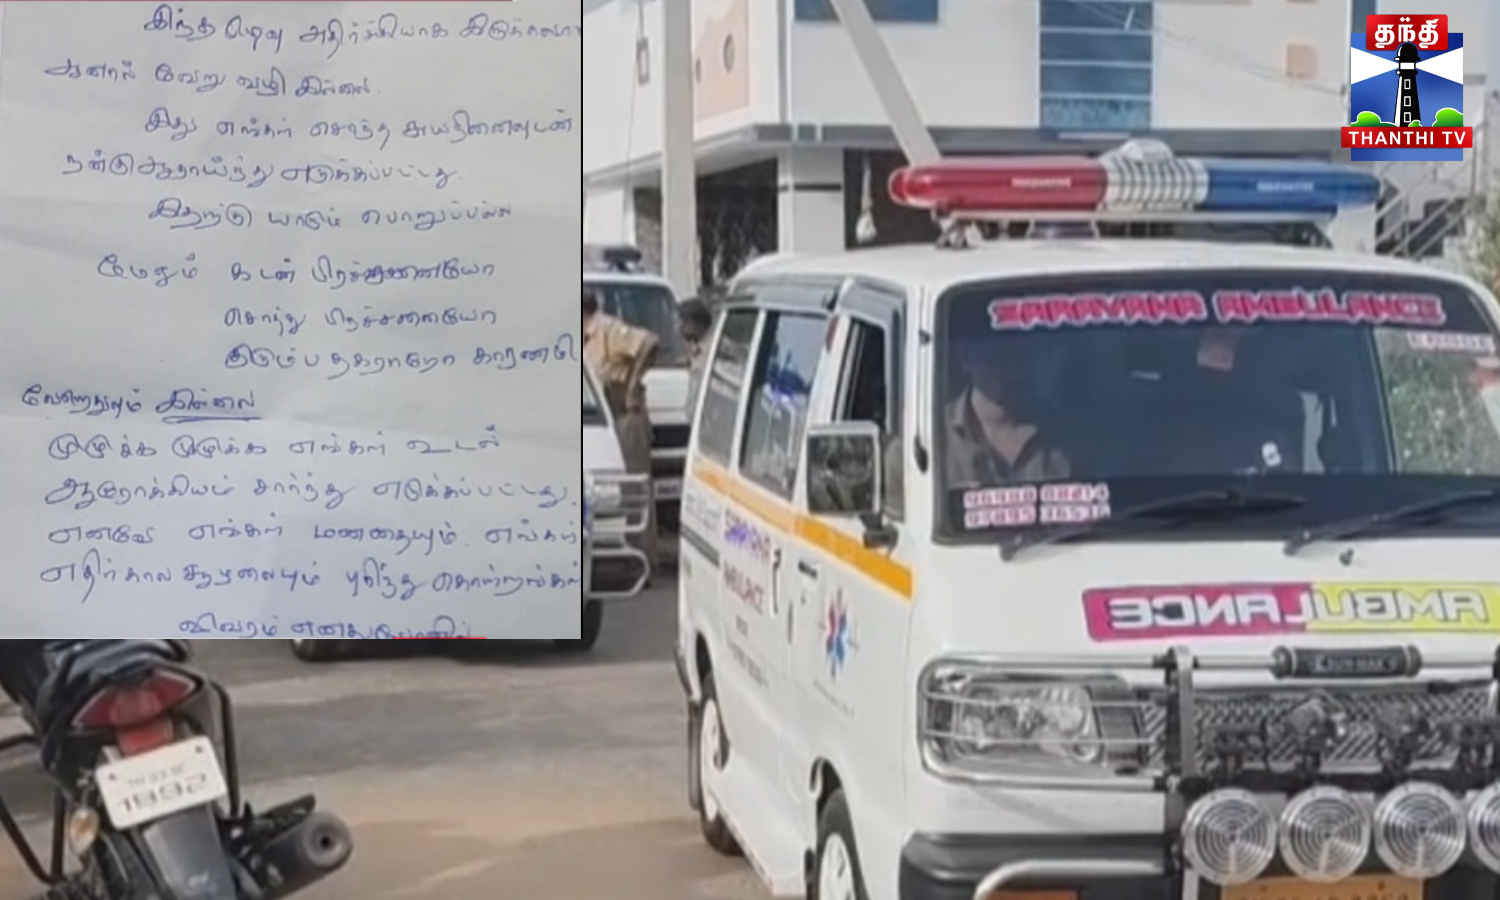 இந்த முடிவு அதிர்ச்சியாக இருக்கலாம்
ஆனால் வேறு வழி இல்லை.
இது எங்கள் சொந்த சுயநினைவுடன்
நன்கு ஆராய்ந்து எடுக்கப்பட்டது.
இதற்கு யாரும் பொறுப்பல்ல
மேலும் கடன் பிரச்சனையோ
சொந்து பிரச்சனையோ
குடும்ப தகராறோ காரணமி
வேறெதுவும் இல்லை
முழுக்க முழுக்க எங்கள் உடல்
ஆரோக்கியம் சார்ந்து எடுக்கப்பட்டது.
எனவே எங்கள் மனதையும். எங்கள்
எதிர்கால சூழலையும் புரிந்து கொள்ளுங்கள்
விவரம் எனது போனில்
தந்தி
THANTHI TV
SARAVANA AMBULANCE
SARAVANA
AMBULANCE
AMBULANCE
1992